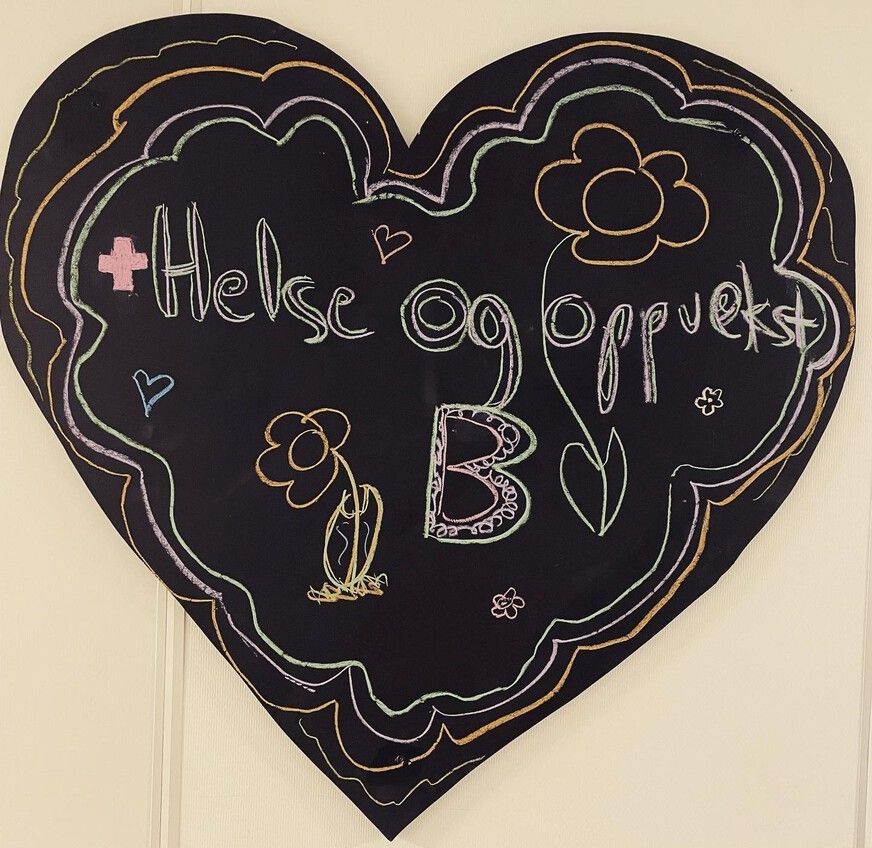 Helse og oppvekst
B